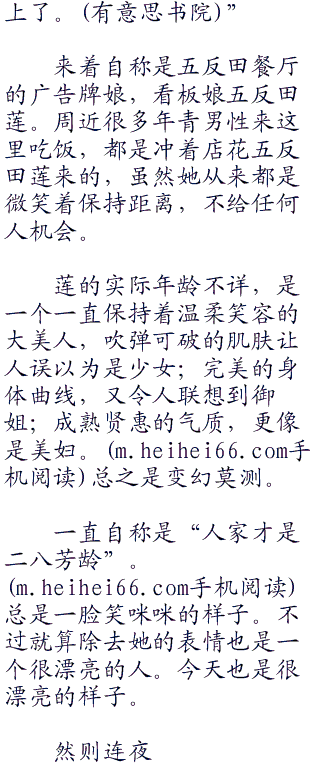 上了。(有意思书院)”
来着自称是五反田餐厅
的广告牌娘，看板娘五反田
莲。周近很多年青男性来这
里吃饭，都是冲着店花五反
田莲来的，虽然她从来都是
微笑着保持距离，不给任何
人机会。
莲的实际年龄不详，是
一个一直保持着温柔笑容的
大美人，吹弹可破的肌肤让
人误以为是少女；完美的身
体曲线，又令人联想到御
姐；成熟贤惠的气质，更像
是美妇。(m.heihei66.com手
机阅读)总之是变幻莫测。
一直自称是“人家才是
二八芳龄”。
(m.heihei66.com手机阅读)
总是一脸笑咪咪的样子。不
过就算除去她的表情也是一
个很漂亮的人。今天也是很
漂亮的样子。
然则连夜